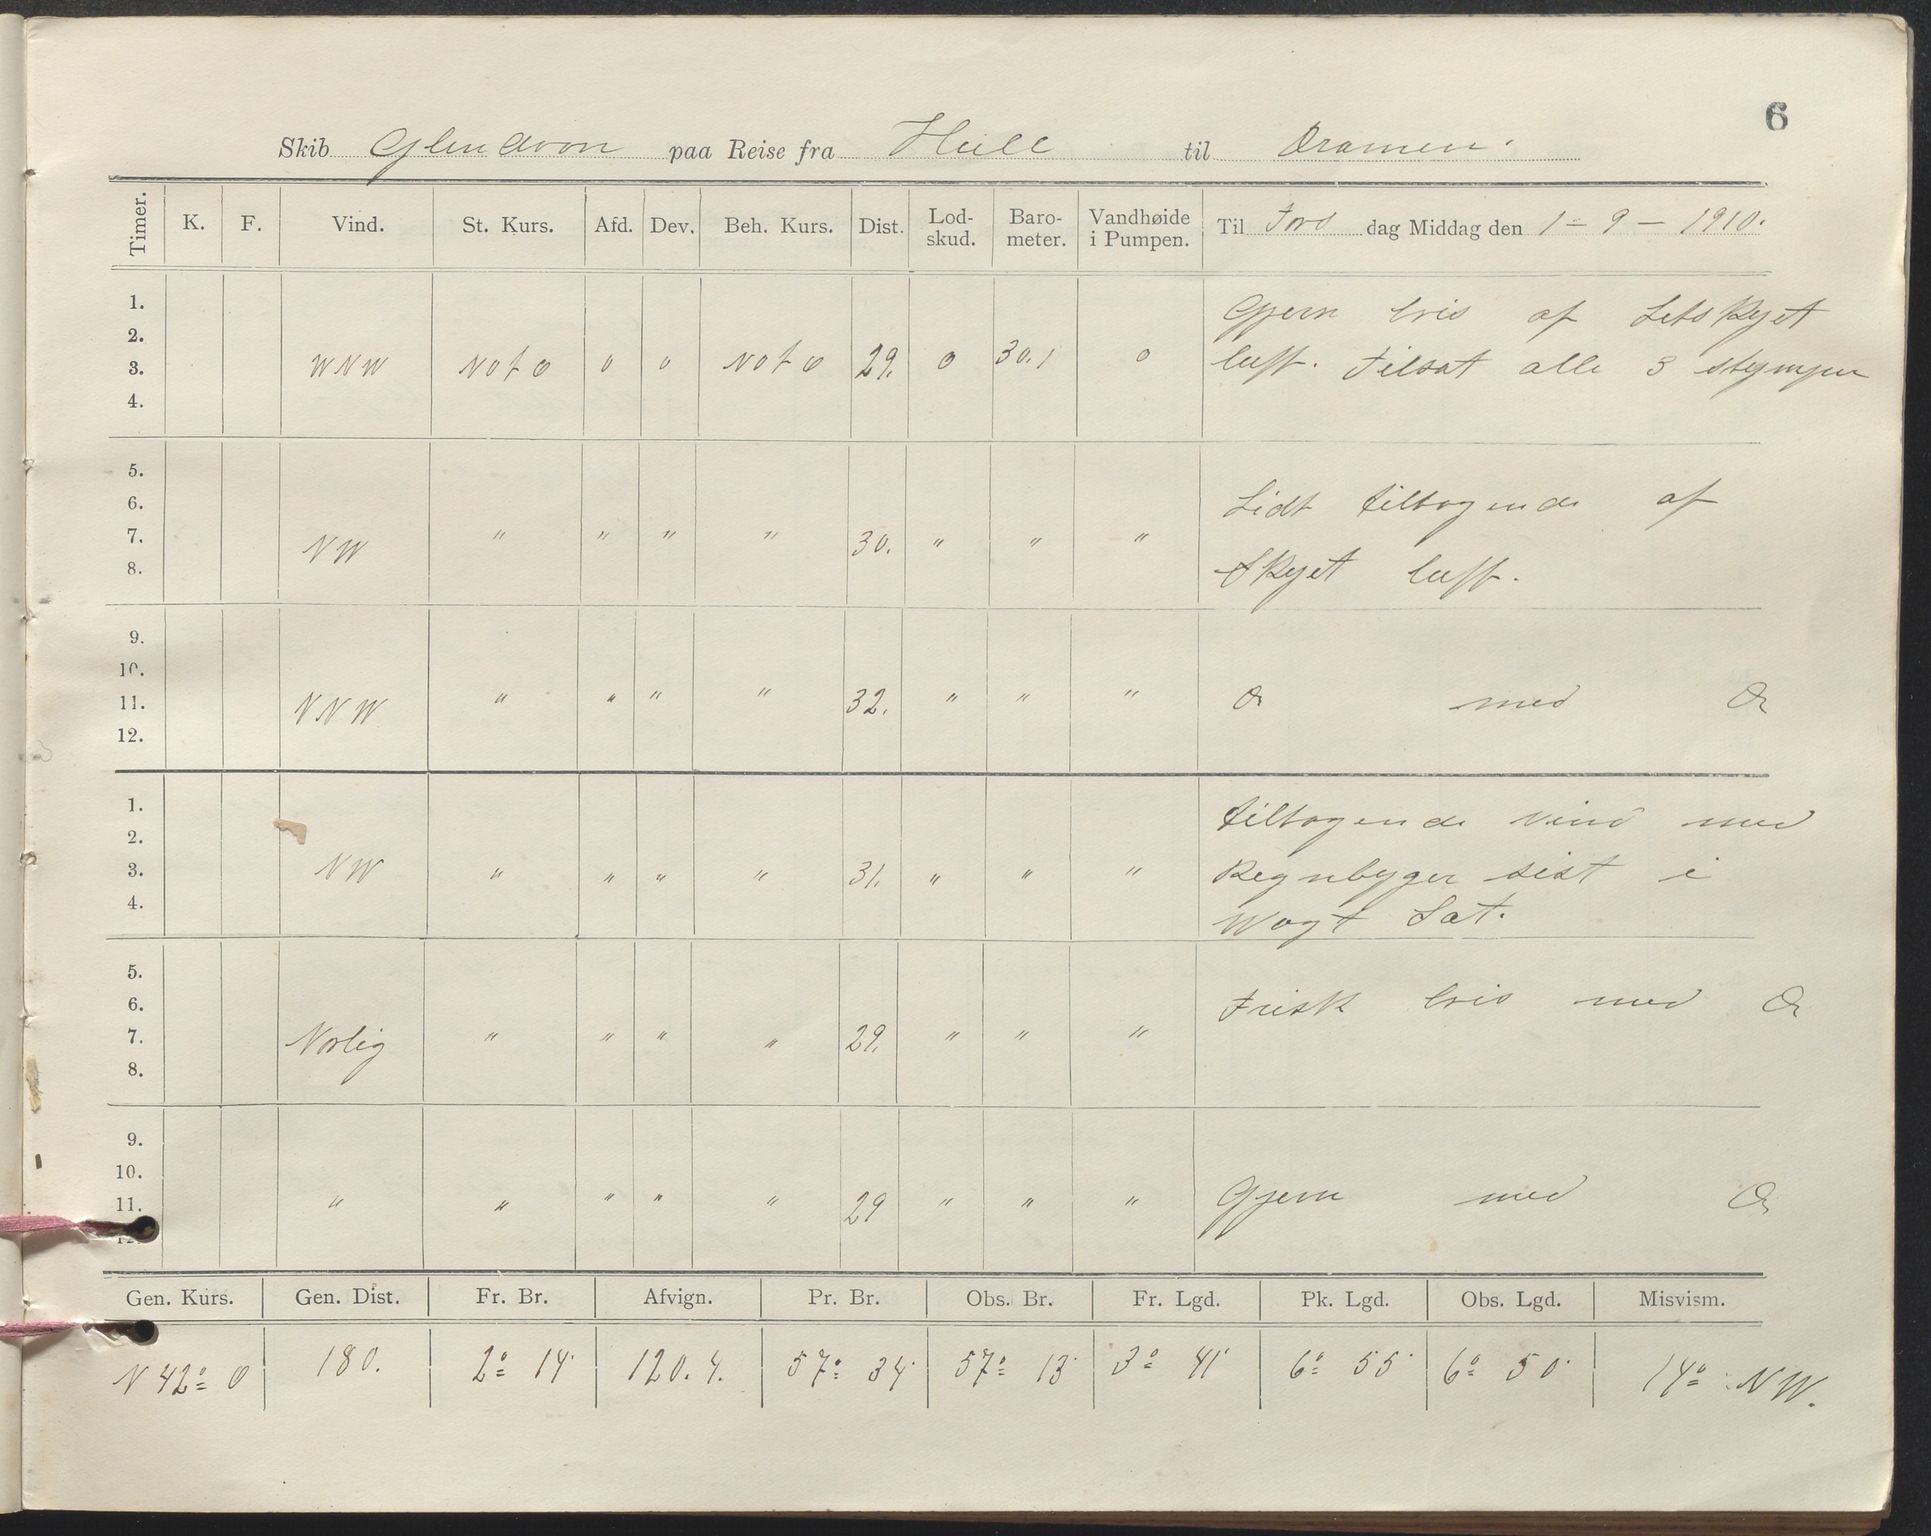 6
Skib Glendoon paa Reise fra Hull til Dramen.
Timer. K. F. Vind. St. Kurs. Afd. Dev. Beh. Kurs. Dist. Lod-skud. Baro-meter. Vandhøide i Pumpen. Til Tors dag Middag den 1 - 9 - 1910.
1. Gjevn bris af Letskyet
2.
3. WNW NOtO 0 0 NOtO 29. 0 30.1 0 luft. Tilsat alle 3
4.
5.
6. Lidt tiltagende af
7. NW " " " " 30. " " "
8. Skyet luft.
9.
10.
11. NNW " " " " 32. " " " Do med Do
12.
1. tiltagende vind med
2.
3. NW " " " " 31. " " " Regnbyger sist i
4. Wagt Sat.
5.
6. Frisk bris med Do
7. Norlig " " " " 29. " " "
8.
9.
10.
11. " " " " " 29 " " " Gjevn med Do
12.
Gen. Kurs. Gen. Dist. Fr. Br. Afvign. Pr. Br. Obs. Br. Fr. Lgd. Pk. Lgd. Obs. Lgd. Misvism.
N 42° O 180. 2° 14' 120.4. 57° 34' 57° 13' 3° 41' 6° 55' 6° 50' 14° NW.